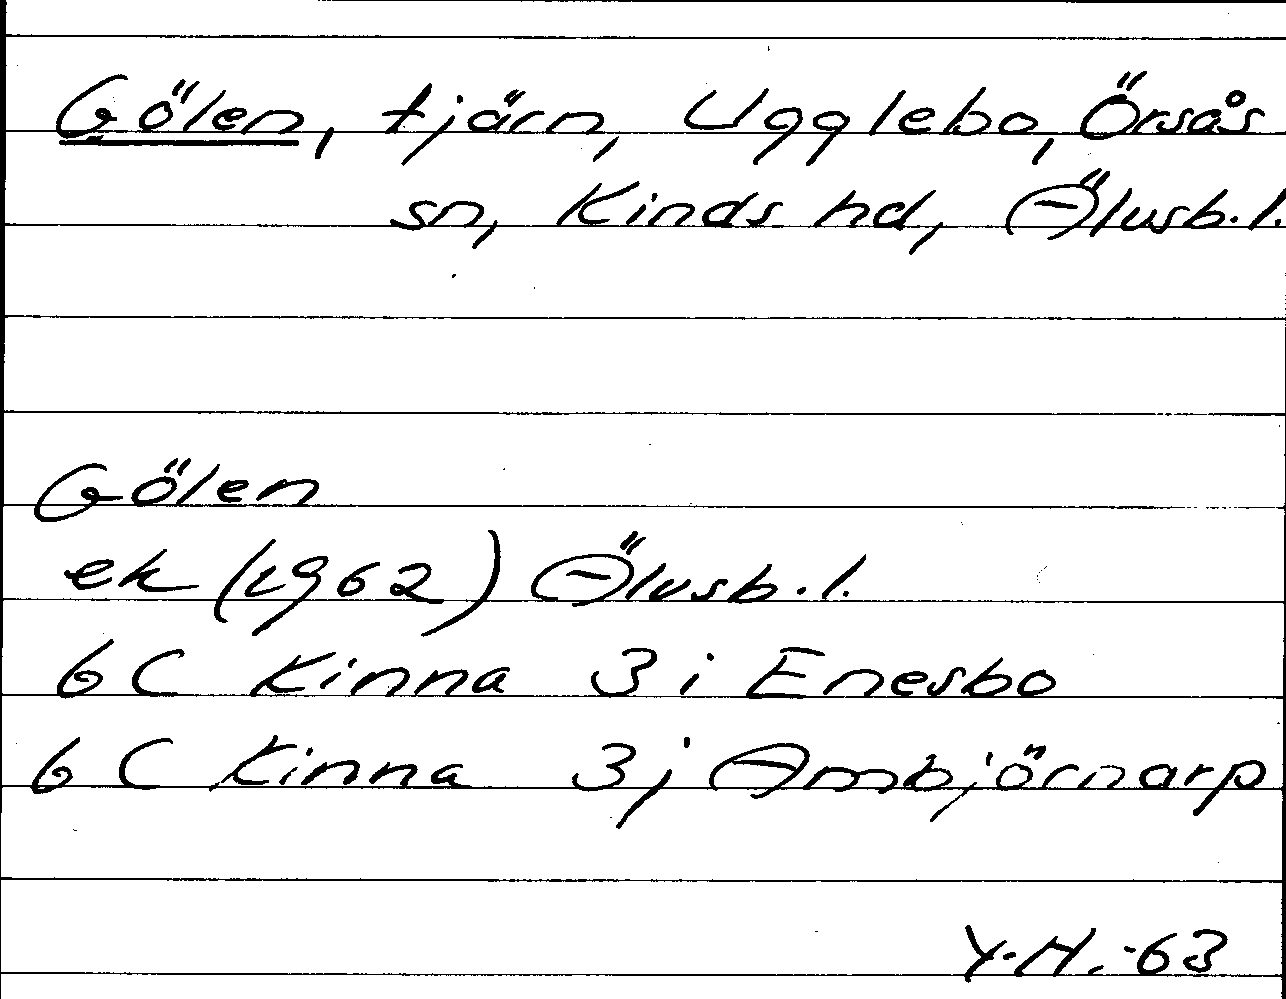 Gölen, tjärn, Ugglebo, Örsås
sn, Kinds hd, Älvsb. l.
Gölen
ek (1962) Älvsb. l.
6 C Kinna 3 i Enesbo
6 C Kinna 3 j Ambjörnarp
Y.H. -63